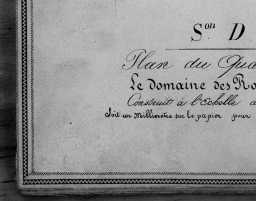 Son D
Plan du Qua
Le Domaine des Ro
Construit à l'Echelle d
Soit un Millimètre sur le papier pour